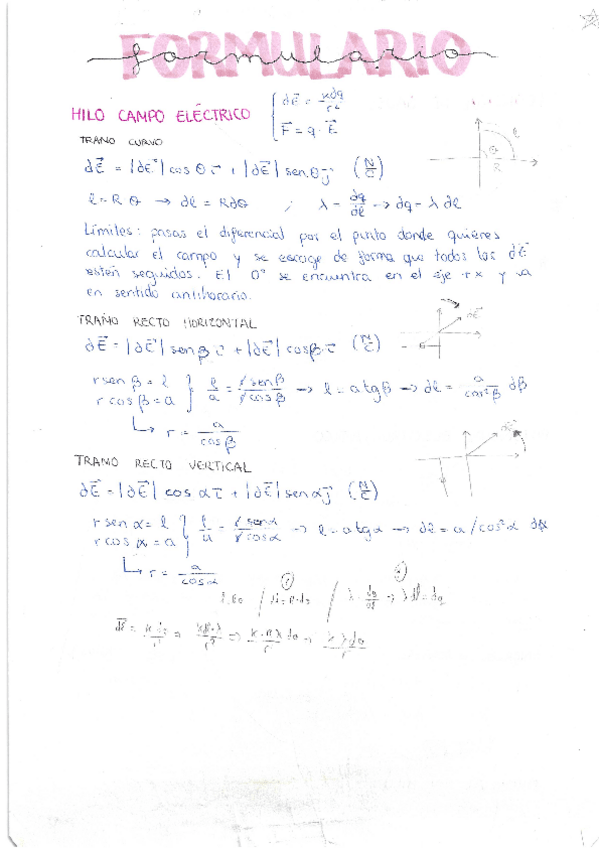 FORMULARIO
formulario
HILO CAMPO ELÉCTRICO { dE⃗ = Kdq/r²
F⃗ = q · E⃗
TRAMO CURVO
dE⃗ = |dE⃗| cos θ i⃗ + |dE⃗| sen θ j⃗ (N/C)
l = R θ → dl = R dθ ; λ = dq/dl → dq = λ dl
Límites: pasas el diferencial por el punto donde quieres
calcular el campo y se escoge de forma que todos los dE⃗
esten seguidos. El 0° se encuentra en el eje +x y va
en sentido antihorario.
TRAMO RECTO HORIZONTAL
dE⃗ = |dE⃗| sen β i⃗ + |dE⃗| cos β i⃗ (N/C)
r sen β = l
r cos β = a } l/a = r sen β / r cos β → l = a tg β → dl = a/cos² β dβ
↳ r = a/cos β
TRAMO RECTO VERTICAL
dE⃗ = |dE⃗| cos α i⃗ + |dE⃗| sen α j⃗ (N/C)
r sen α = l
r cos α = a } l/a = r sen α / r cos α → l = a tg α → dl = a / cos² α dα
↳ r = a/cos α
λ = dq/dl → λ dl = dq